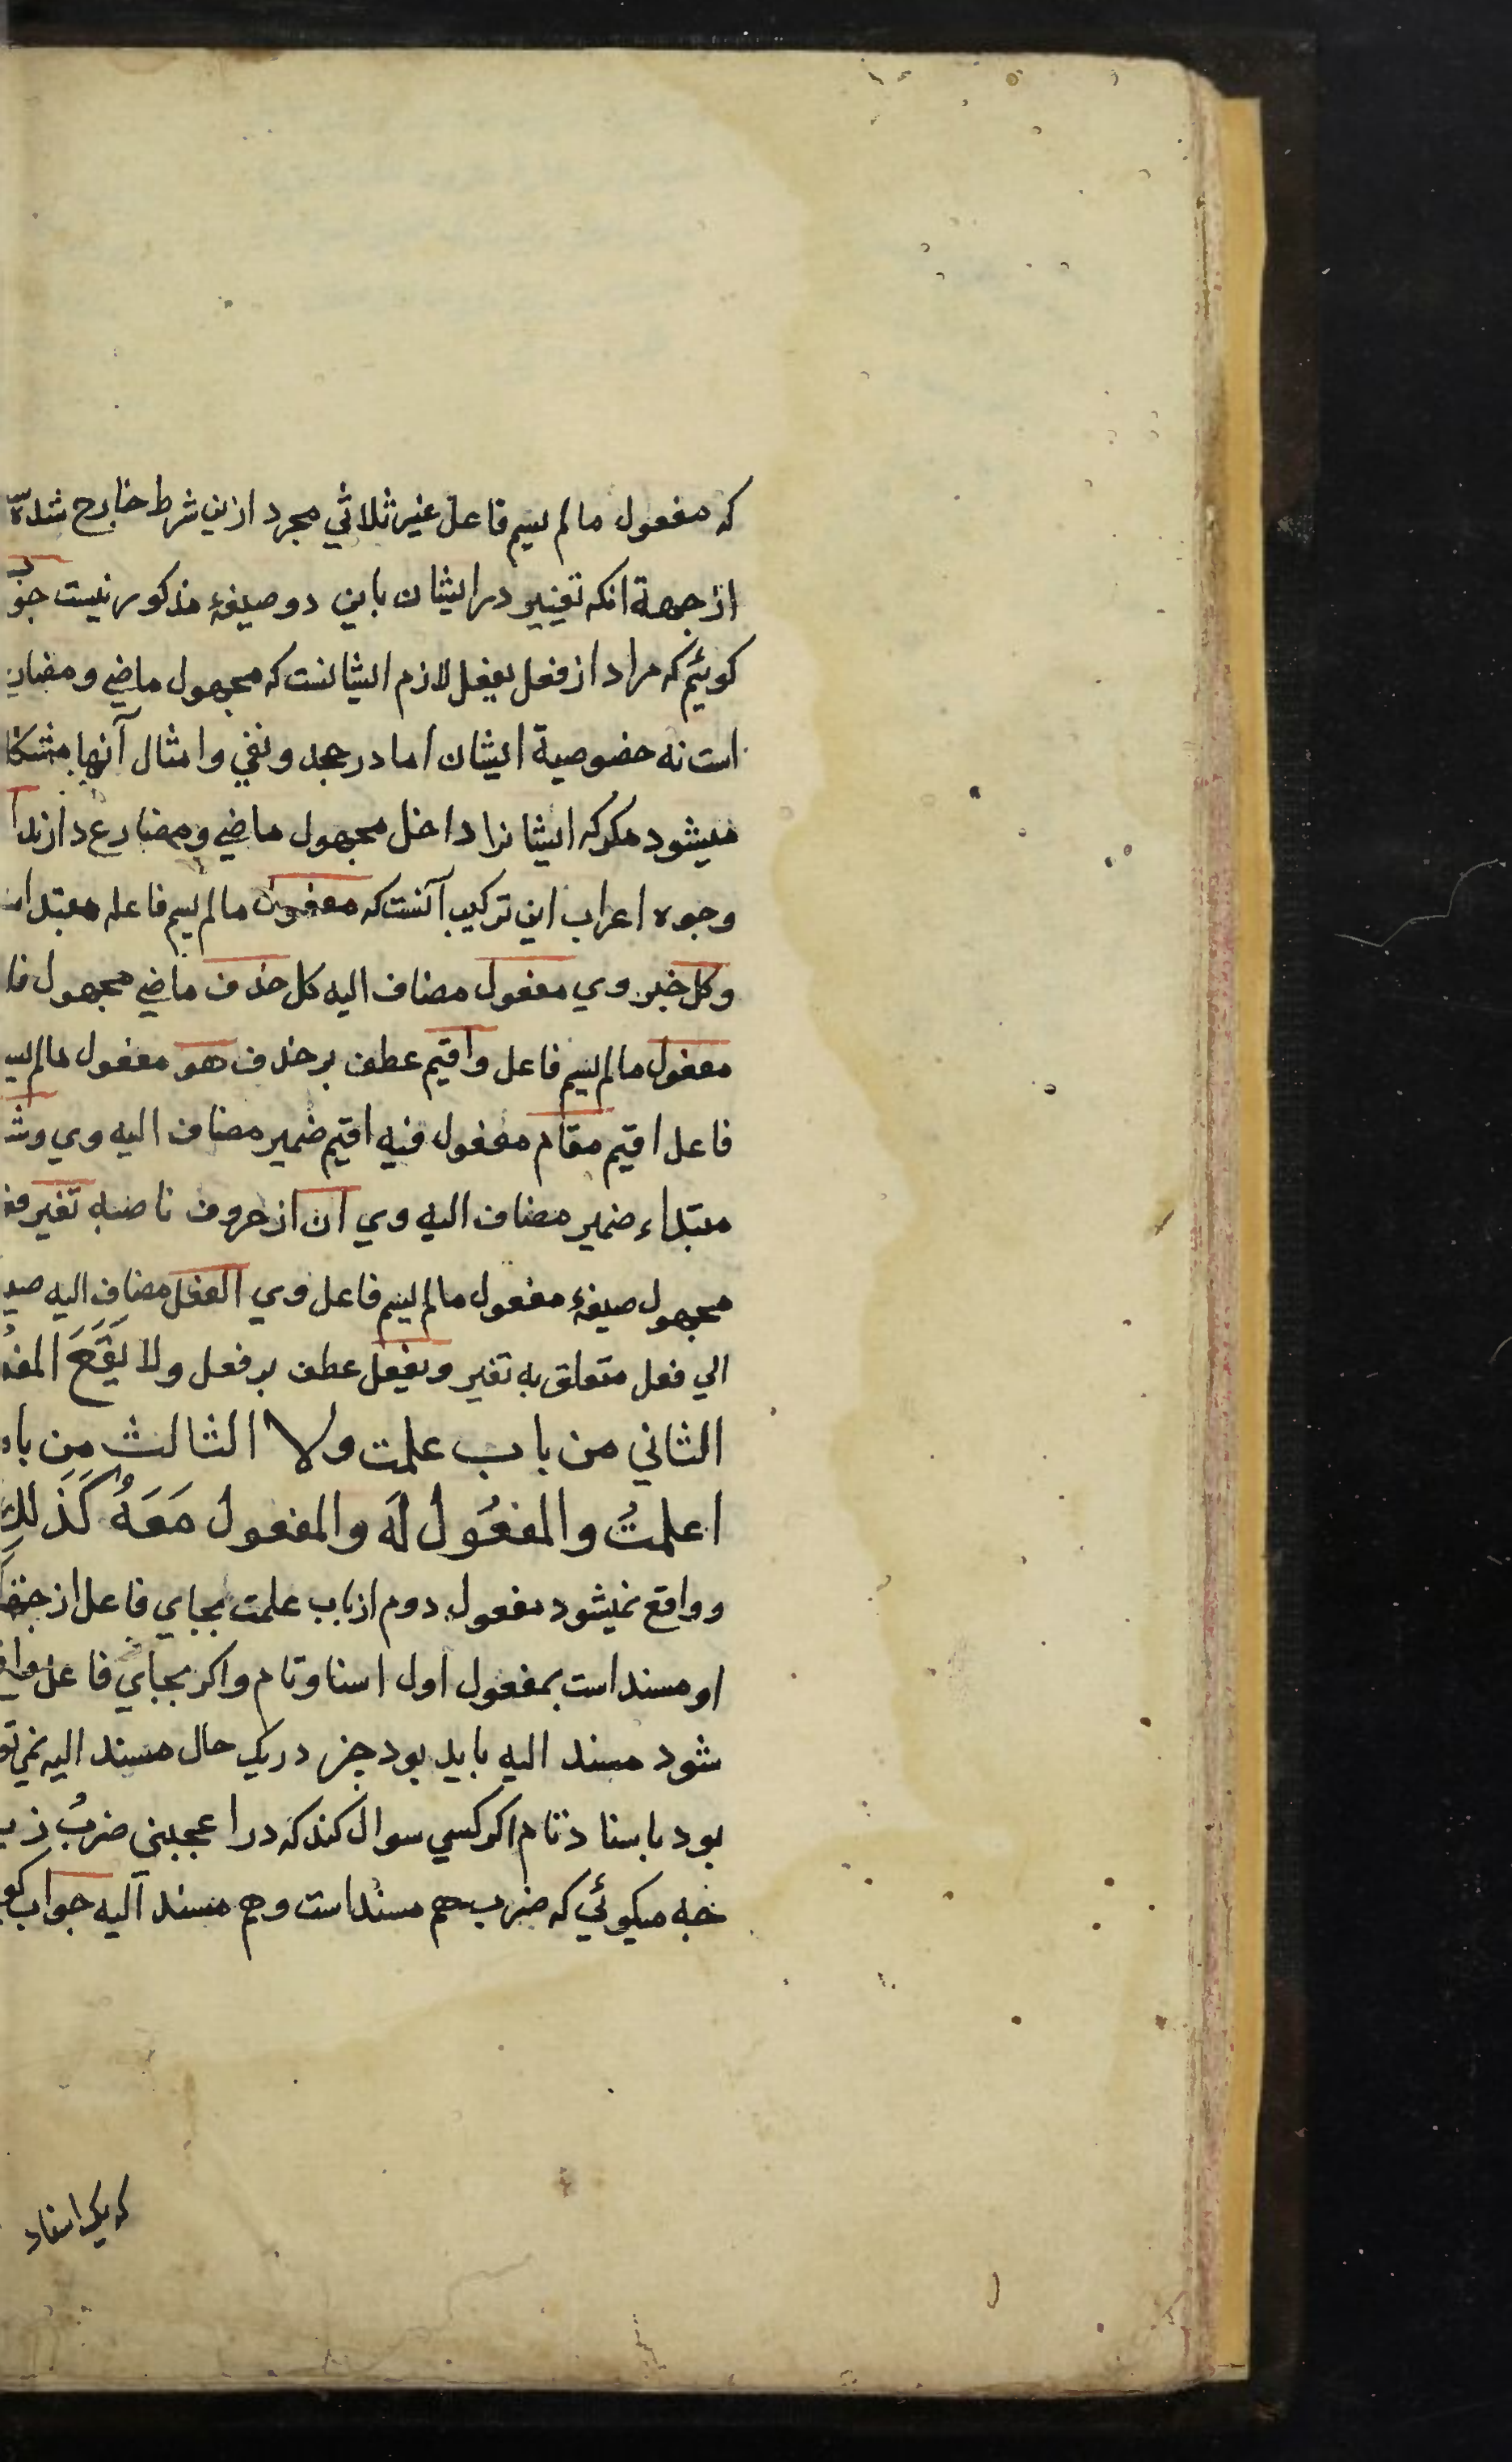 که مفعول مالم یسم فاعل غیر ثلاثی مجرد ازین شرط خارج شده
از جهة انکه تغییر در ایشان باین دو صیغهٔ مذکور نیست جو
کوئیم که مراد از فعل یفعل لازم ایشانست که مجهول ماضی و مضار
است نه خصوصیة ایشان اما در جحد و نفی و امثال آنها مشکل
میشود مکر که ایشانرا داخل مجهول ماضی و مضارع دارند
وجوه اعراب این ترکیب آنست که مفعول مالم یسم فاعله مبتدا
و کل خبر وی مفعول مضاف الیه کل حذف ماضی مجهول فا
مفعول مالم یسم فاعل و اقیم عطف بر حذف هو مفعول مالم یس
فاعل اقیم مقام مفعول فیه اقیم ضمیر مضاف الیه وی و ش
مبتداء ضمیر مضاف الیه وی ان از حروف ناصبه تغیر
مجهول صیغهٔ مفعول مالم یسم فاعل وی الفعل مضاف الیه صی
الی فعل متعلق به تغیر و یفعل عطف بر فعل ولا یَقَعَ المف
الثاني من باب علمت ولا الثالث مِن با
اعلمتُ والمفعُول لَه والمفعول مَعَهُ کَذَلِكَ
و واقع نمیشود مفعول دوم از باب علمت بجای فاعل از
او مسند است بمفعول اول اسناد تام و اکر بجای فاعل واق
شود مسند الیه باید بود جز در یک حال مسند الیه نمی تو
بود باسناد تام اکر کسی سوال کند که در اعجبنی ضربُ
خه میکوئی که ضرب هم مسند است و هم مسند الیه جواب کو
که یک اسناد